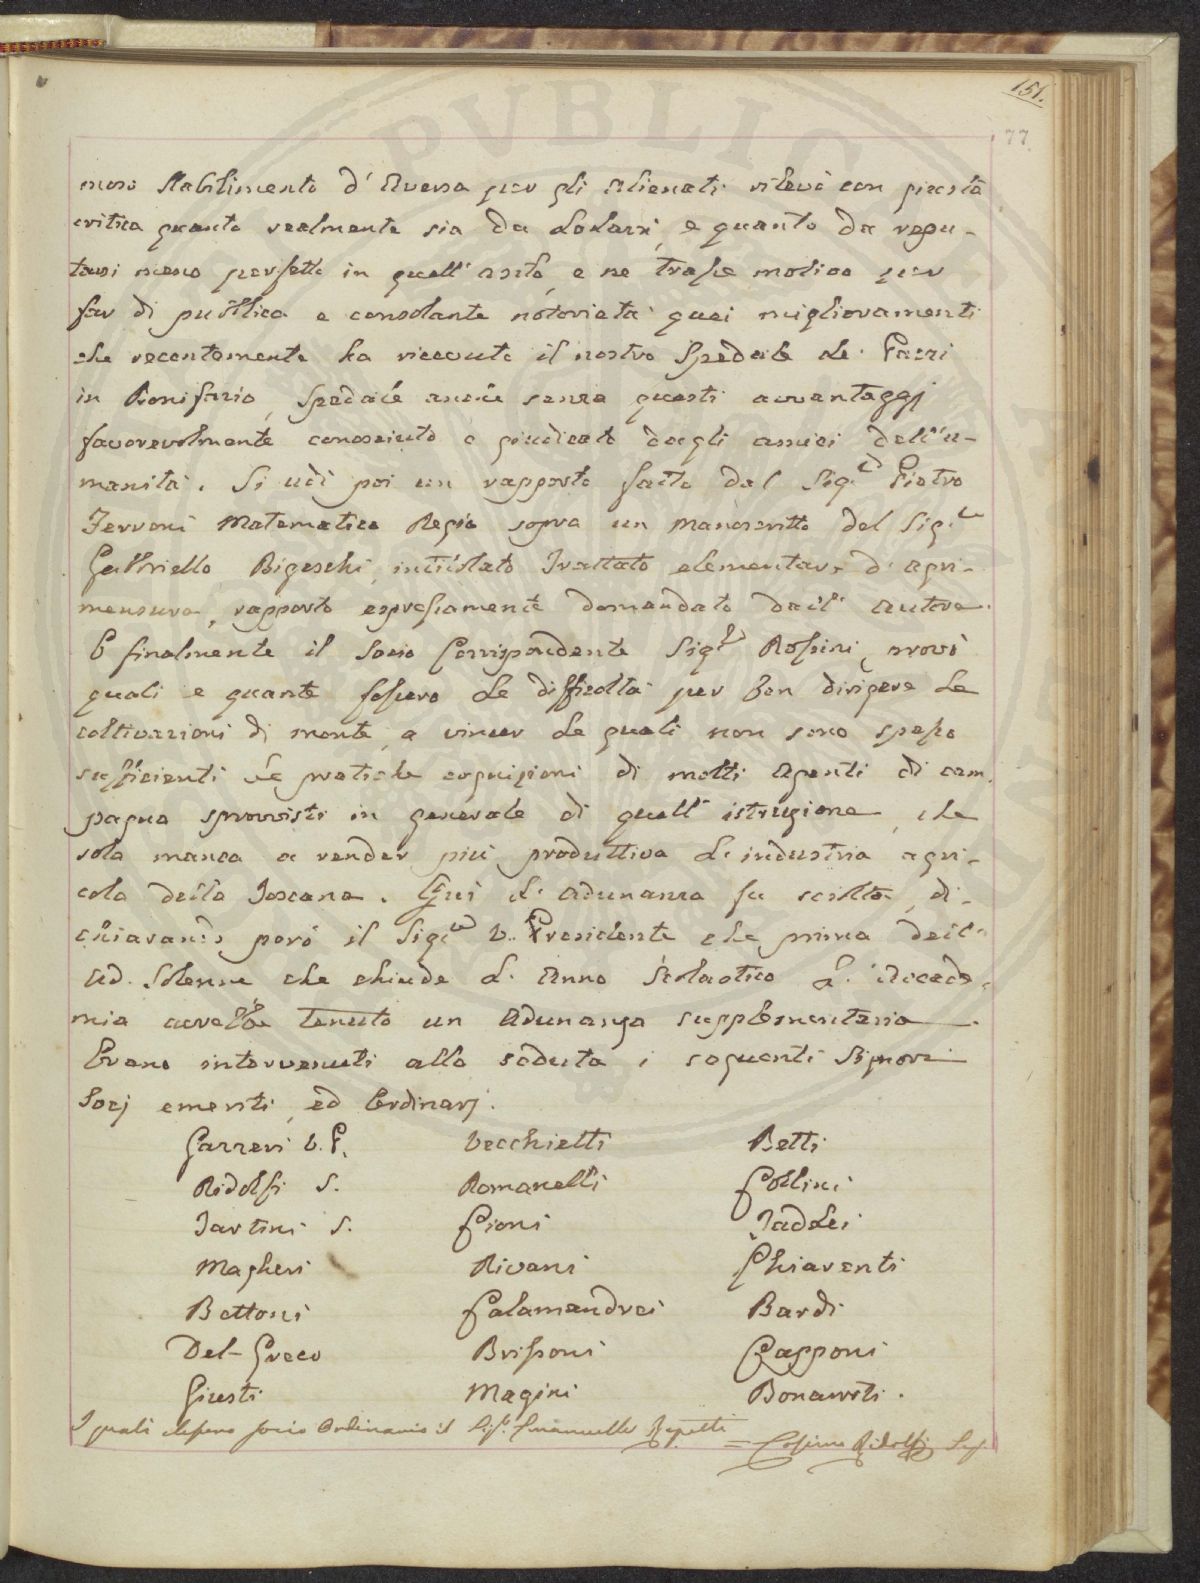 151.
77
PVBLIC
moso Stabilimento d' Aversa per gli Alienati rilevò con giusta
critica quanto realmente sia da Lodarsi, e quanto da repu-
tarsi meno perfetto in quell' asilo, e ne trasse motivo per
far di pubblica e consolante notorietà quei miglioramenti
che recentemente ha ricevuto il nostro Spedale de' Pazzi
in Bonifazio, Spedale anche senza questi avvantaggj
favorevolmente conosciuto e giudicato dagli amici dell'u-
manità. Si udì poi un rapporto fatto dal Sig.r Pietro
Ferroni Matematico Regio sopra un Manoscritto del Sig.r
Gabbriello Bigeschi, intitolato Trattato elementare d' agri-
mensura, rapporto espressamente domandato dall' autore.
E finalmente il Socio Corrispondente Sig.r Rossini, provò
quali e quante fossero Le difficoltà per ben dirigere Le
coltivazioni di monte, a vincer Le quali non sono spesso
sufficienti Le pratiche cognizioni di molti Agenti di cam
pagna sprovvisti in generale di quell' istruzione, che
sola manca a render più produttiva L' industria agri-
cola della Toscana. Qui L' adunanza fu sciolta, di-
chiarando però il Sig.r V. Presidente che prima dell'
Ad. Solenne che chiude L' Anno Scolastico L' Accade-
mia avrebbe tenuto un Adunanza supplementaria.
Erano intervenuti alla seduta i seguenti Signori
Socj emeriti, ed Ordinarj.
Gazzeri V. P. Vecchietti Betti
Ridolfi S. Romanelli Collini
Tartini S. Cioni Taddei
Magheri Rivani Chiarenti
Bettoni Calamandrei Bardi
Del-Greco Brissoni Capponi
Giusti Magini Bonarroti.
I quali elessero Socio Ordinario il Sig.r Emanuelle Repetti
= Cosimo Ridolfi Seg.